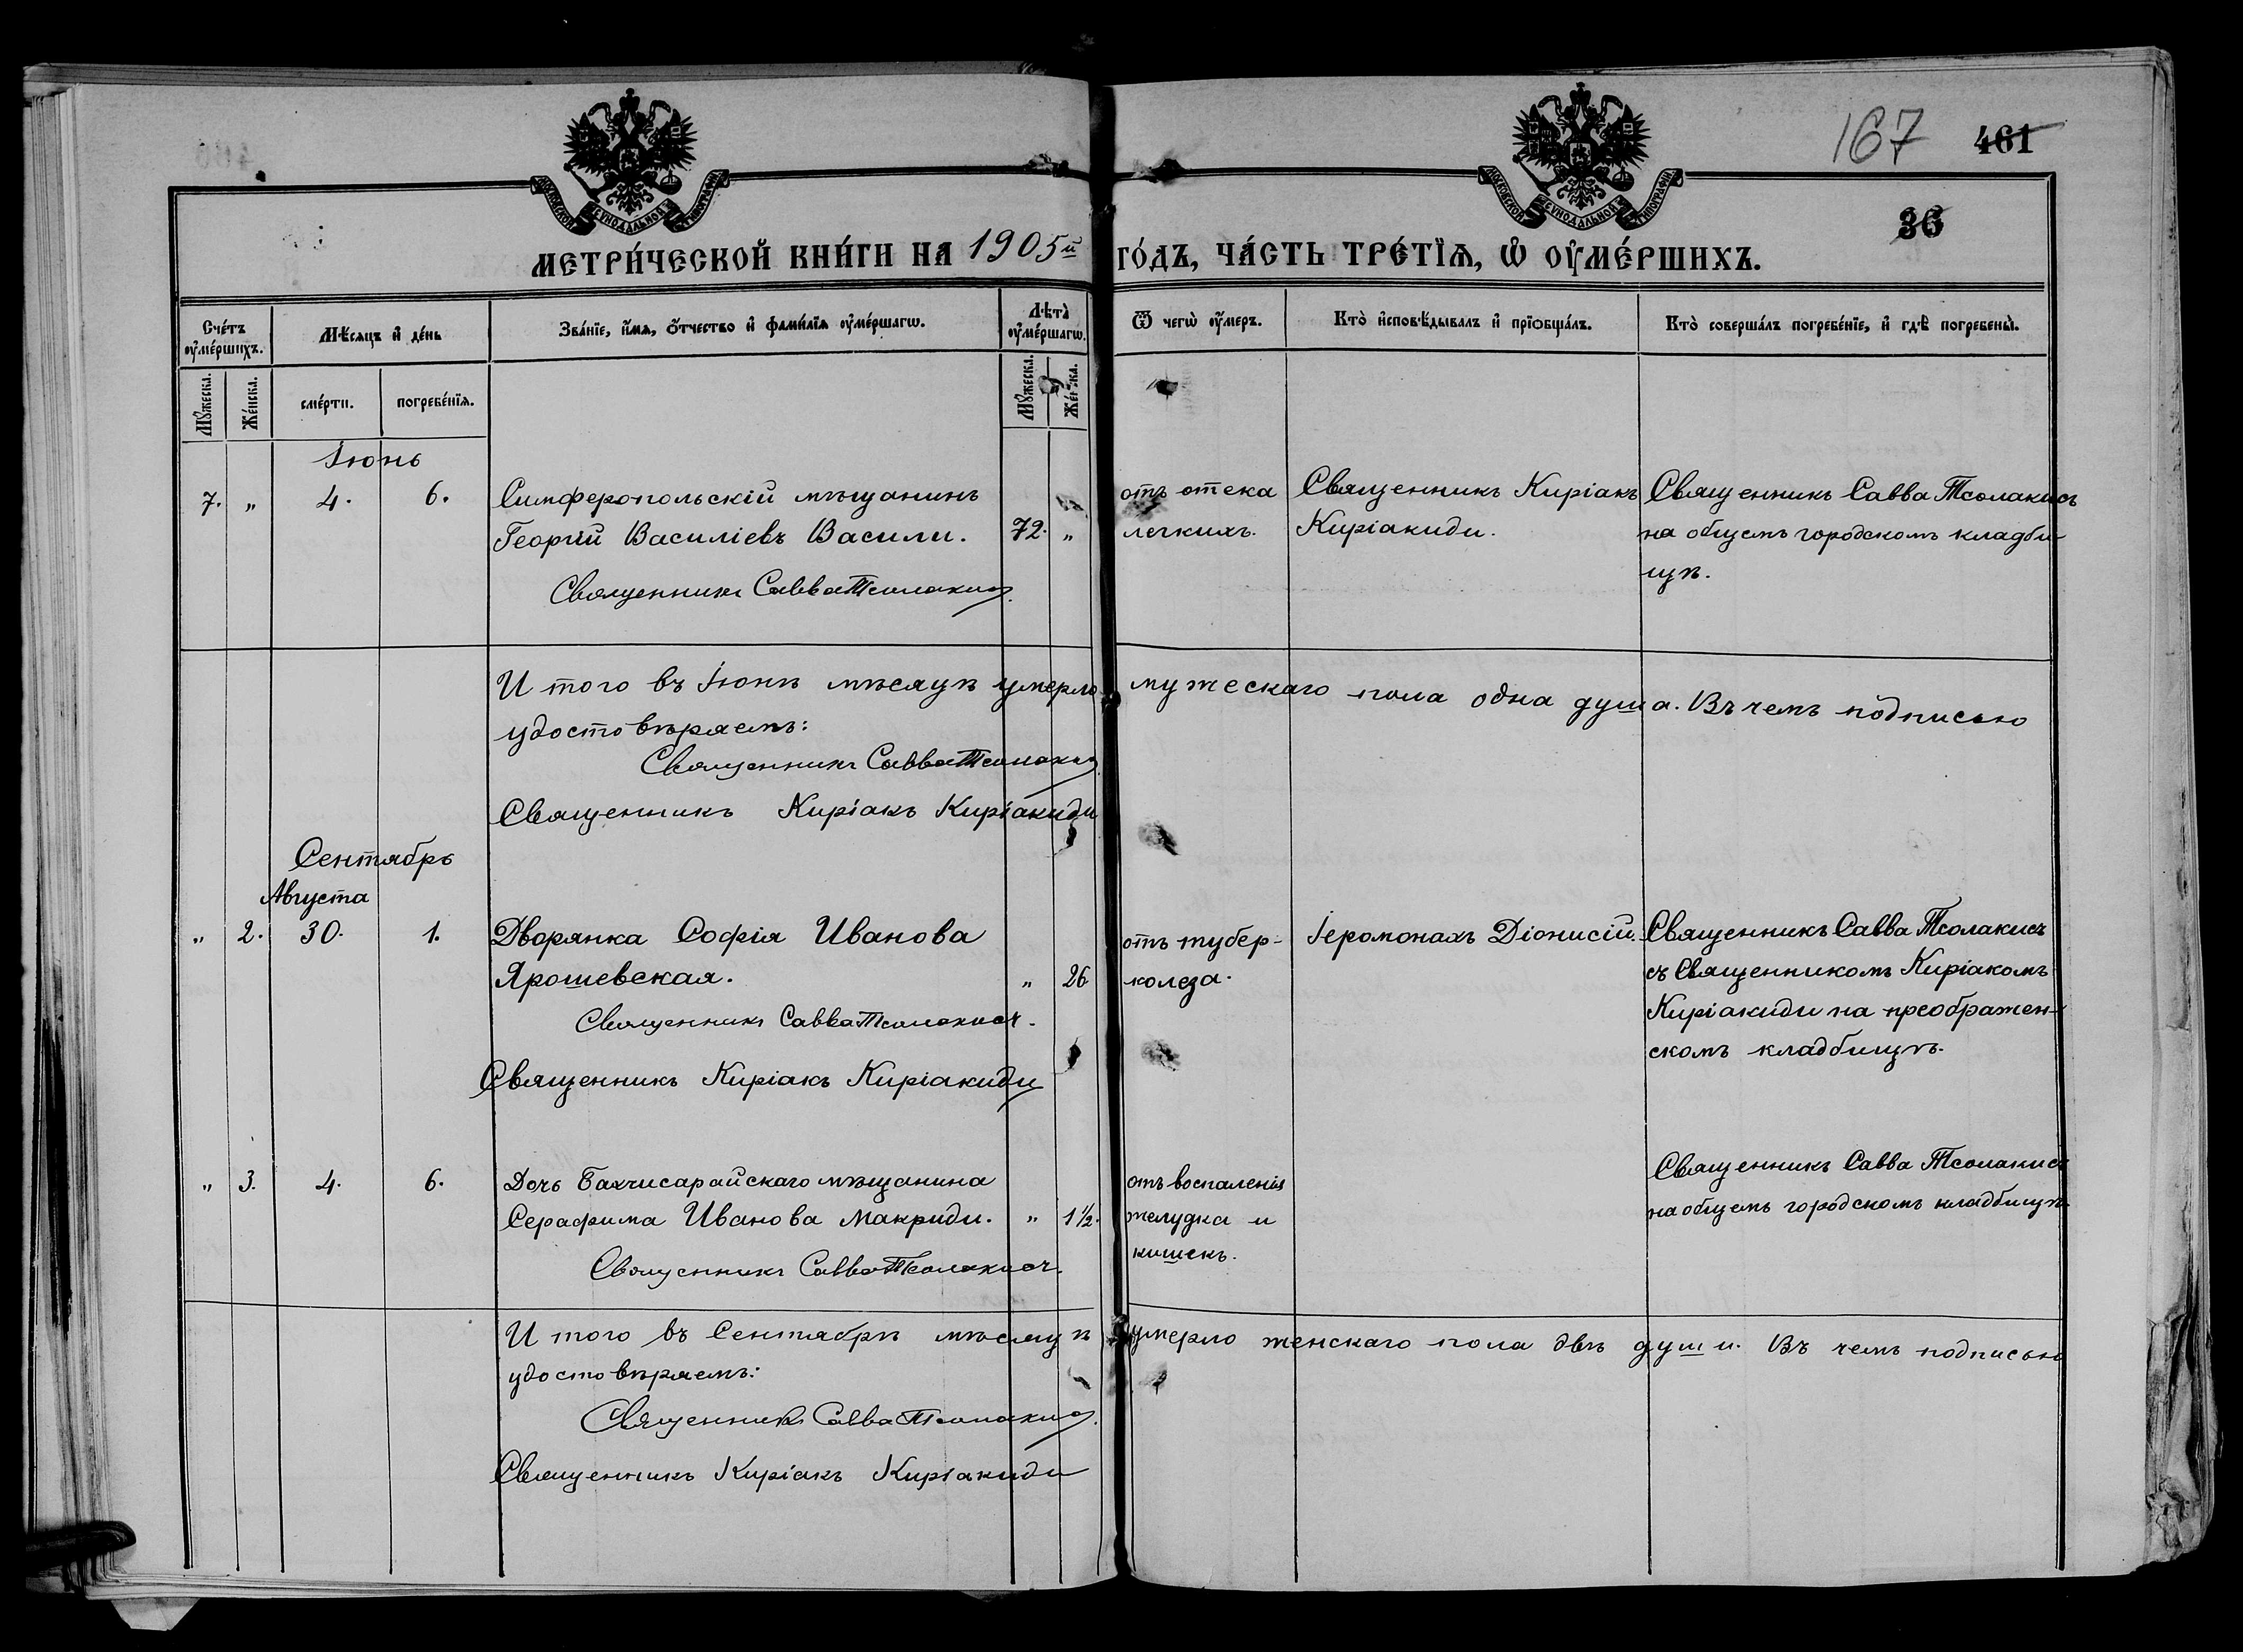 МОСКОВСКОЙ СУНОДАЛЬНОЙ ТИПОГРАФІИ
МОСКОВСКОЙ СУНОДАЛЬНОЙ ТИПОГРАФІИ
167 461
36
МЕТРИ́ЧЕСКОЙ КНИ́ГИ НА 1905й ГО́ДЪ, ЧА́СТЬ ТРЕ́ТІѦ, Ѡ҆ ОУ҆МЕ́РШИХЪ.
Сче́тъ оу҆ме́ршихъ.
Мѣ́сяцъ и҆ де́нь
Зва́нїе, и҆́мя, ѻ҆́тчество и҆ фами́лїя оу҆ме́ршагѡ.
Лѣ́та оу҆ме́ршагѡ.
Ѿ чегѡ̀ оу҆́меръ.
Кто̀ и҆сповѣ́дывалъ и҆ прїѡбща́лъ.
Кто̀ соверша́лъ погребе́нїе, и҆ гдѣ̀ погребены̀.
Мꙋ́жеска.
Же́нска.
сме́рти.
погребе́нїя.
Мꙋ́жеска.
Же́нска.
Іюнь
7. „ 4. 6. Симферопольскій мѣщанинъ
Георгій Василіевъ Васили. 72. „
отъ отека
легкихъ.
Священникъ Киріакъ
Киріакиди.
Священникъ Савва Тсолакисъ
на общемъ городскомъ кладби-
щѣ.
Священникъ Савва Тсолакисъ.
И того въ Іюнѣ мѣсяцѣ умерло мужескаго пола одна душа. Въ чемъ подписью
удостовѣряемъ:
Священникъ Савва Тсолакисъ.
Священникъ Киріакъ Киріакиди
Сентябрь
Августа
„ 2. 30. 1. Дворянка Софія Иванова
Ярошевская. „ 26
отъ тубер-
колеза.
Іеромонахъ Діонисій.
Священникъ Савва Тсолакисъ
съ Священникомъ Киріакомъ
Киріакиди на преображен-
скомъ кладбищѣ.
Священникъ Савва Тсолакисъ.
Священникъ Киріакъ Киріакиди
„ 3. 4. 6. Дочь Бахчисарайскаго мѣщанина
Серафима Иванова Макриди. „ 1½.
отъ воспаленія
желудка и
кишекъ.
Священникъ Савва Тсолакисъ
на общемъ городскомъ кладбищѣ
Священникъ Савва Тсолакисъ.
И того въ Сентябрѣ мѣсяцѣ умерло женскаго пола двѣ души. Въ чемъ подписью
удостовѣряемъ:
Священникъ Савва Тсолакисъ.
Священникъ Киріакъ Киріакиди